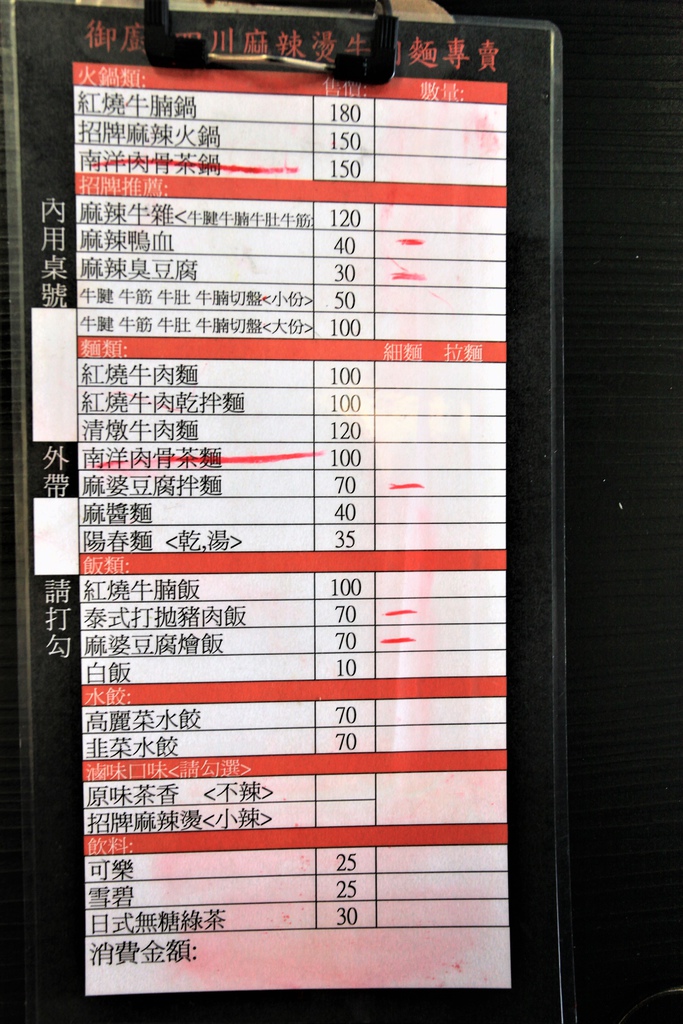 御廚 四川麻辣燙牛肉麵專賣
火鍋類: 售價: 數量:
紅燒牛腩鍋 180
招牌麻辣火鍋 150
南洋肉骨茶鍋 150
招牌推薦:
麻辣牛雜<牛腱牛腩牛肚牛筋 120
麻辣鴨血 40
麻辣臭豆腐 30
牛腱 牛筋 牛肚 牛腩切盤<小份> 50
牛腱 牛筋 牛肚 牛腩切盤<大份> 100
麵類: 細麵 拉麵
紅燒牛肉麵 100
紅燒牛肉乾拌麵 100
清燉牛肉麵 120
南洋肉骨茶麵 100
麻婆豆腐拌麵 70
麻醬麵 40
陽春麵 <乾,湯> 35
飯類:
紅燒牛腩飯 100
泰式打拋豬肉飯 70
麻婆豆腐燴飯 70
白飯 10
水餃:
高麗菜水餃 70
韭菜水餃 70
滷味口味<請勾選>
原味茶香 <不辣>
招牌麻辣燙<小辣>
飲料:
可樂 25
雪碧 25
日式無糖綠茶 30
消費金額:
內用桌號
外帶
請打勾